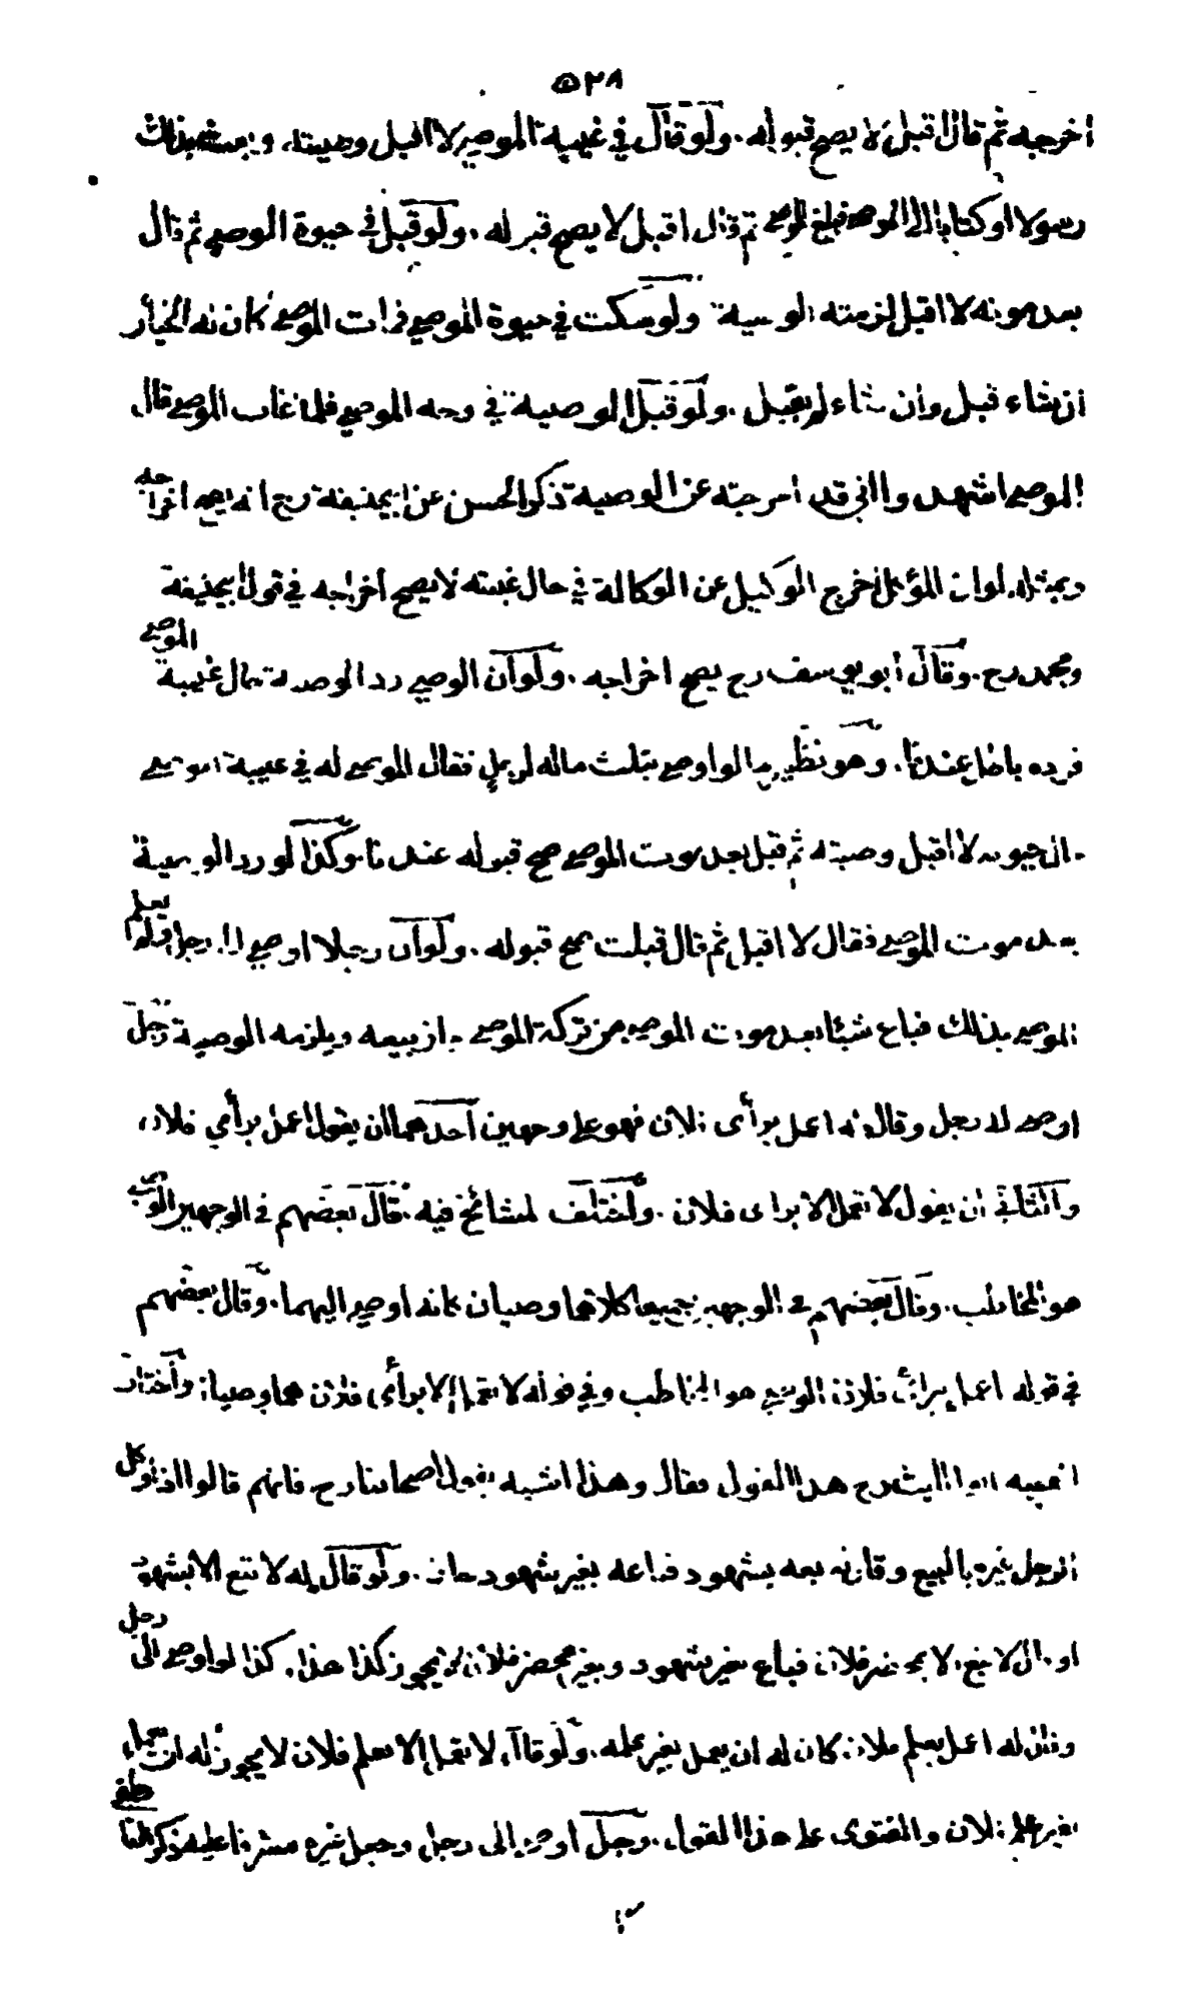 ٥٢٨
اخرجه ثم قال اقبل لا يصح قبوله . ولو قال في غيبة الموصي لا اقبل وصيته وبعث بذلك
رسولا او كتابا الى الموصي فبلغ الموصي ثم قال اقبل لا يصح قبوله . ولو قبل في حيوة الموصي ثم قال
بعد موته لا اقبل لزمته الوصية ولو سكت في حيوة الموصي فمات الموصي كان له الخيار
ان شاء قبل وان شاء لم يقبل . ولو قبل الوصية في وجه الموصي فلما غاب الموصي قال
الموصي اشهدوا اني قد اخرجته عن الوصية ذكر الحسن عن ابيحنيفة رح انه يصح اخراجه
وبمثله لو ان المؤكل اخرج الوكيل عن الوكالة في حال غيبته لا يصح اخراجه في قول ابيحنيفة
ومحمد رح . وقال ابو يوسف رح يصح اخراجه . ولو ان الوصي رد الوصية حال غيبة الموصي
فرده باطل عندنا . وهو نظير ما لو اوصى بثلث ماله لرجل فقال الموصى له في غيبة الموصي
حال حيوته لا اقبل وصيته ثم قبل بعد موت الموصي صح قبوله عندنا وكذا لو رد الوصية
بعد موت الموصي فقال لا اقبل ثم قال قبلت صح قبوله . ولو ان رجلا اوصى الى رجل ولم يعلم
الموصى بذلك فباع شيئا بعد موت الموصي من تركة الموصي جاز بيعه ويلزمه الوصية رجل
اوصى الى رجل وقال له اعمل برأى فلان فهو على وجهين احدهما ان يقول اعمل برأي فلان
والثاني ان يقول لا تعمل الا براى فلان . واختلف المشائخ فيه . قال بعضهم في الوجهين الوصي
هو المخاطب . وقال بعضهم في الوجهين جميعا كلاهما وصيان كانه اوصى اليهما . وقال بعضهم
في قوله اعمل برأى فلان الوصي هو المخاطب وفي قوله لا تعمل الا برأى فلان هما وصيان واختار
الفقيه ابو الليث رح هذا القول فقال وهذا اشبه بقول اصحابنا رح فانهم قالوا اذا وكل
الرجل غيره بالبيع وقال له بعه بشهود فباعه بغير شهود جاز . ولو قال له لا تبع الا بشهود
او قال لا تبع الا بمحضر فلان فباع بغير شهود وبغير محضر فلان لا يجوز كذا هذا . كذا لو اوصى الى رجل
وقال له اعمل بعلم فلان كان له ان يعمل بغير علمه . ولو قال لا تعمل الا بعلم فلان لا يجوز له ان يعمل
بغير علم فلان والفتوى على هذا القول . رجل اوصى الى رجل وجعل غيره مشرفا عليه ذكر